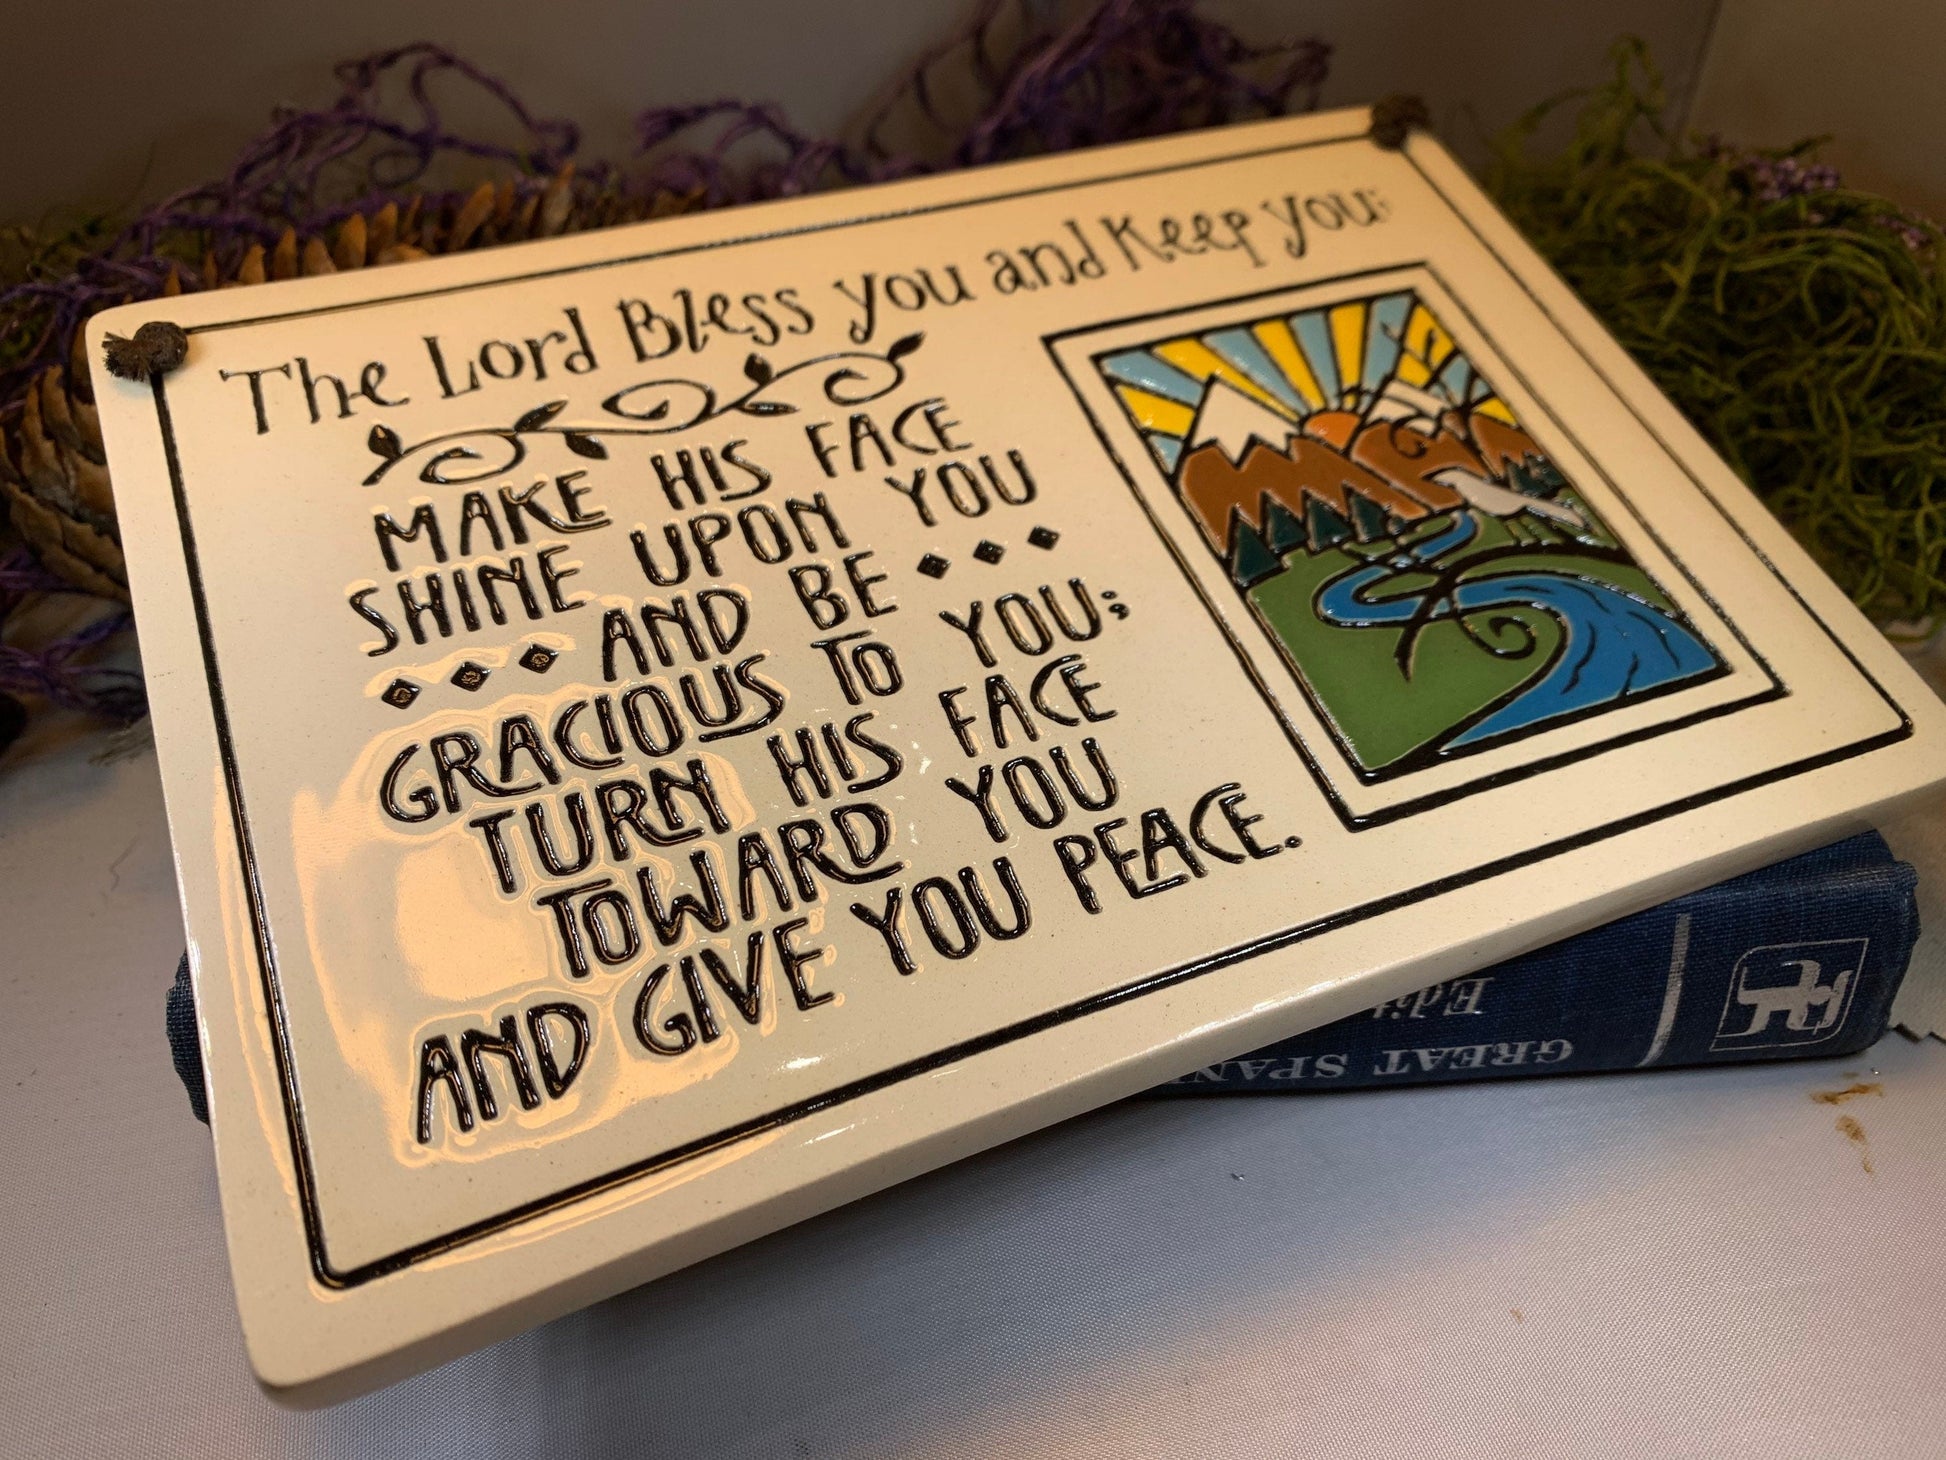 The Lord Bless you and Keep you;
MAKE HIS FACE
SHINE UPON YOU
AND BE
GRACIOUS TO YOU;
TURN HIS FACE
TOWARD YOU
AND GIVE YOU PEACE.
GREAT